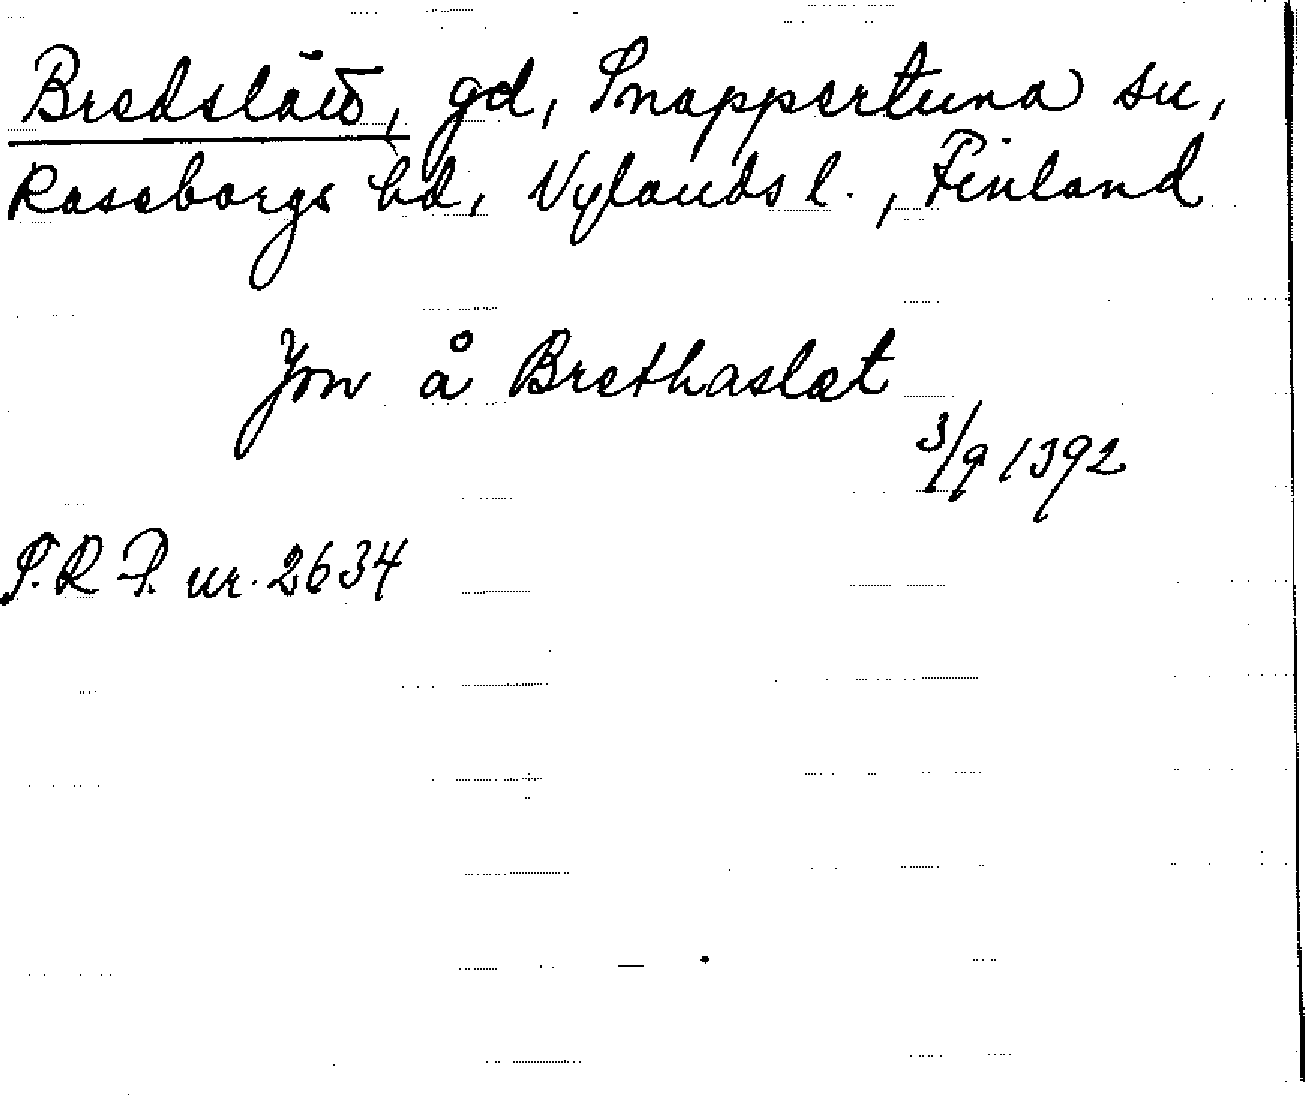 Bredslätt, gd, Snappertuna sn,
Raseborgs hd, Nylands l., Finland
Jon å Brethaslæt
3/9 1392
S.R.P. nr. 2634